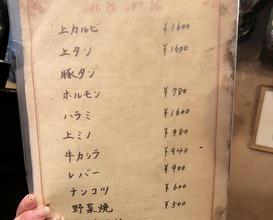 上カルビ ¥1600
上タン ¥1600
豚タン
ホルモン ¥780
ハラミ ¥1600
上ミノ ¥980
牛カシラ ¥940
レバー ¥900
ナンコツ ¥600
野菜焼 ¥500